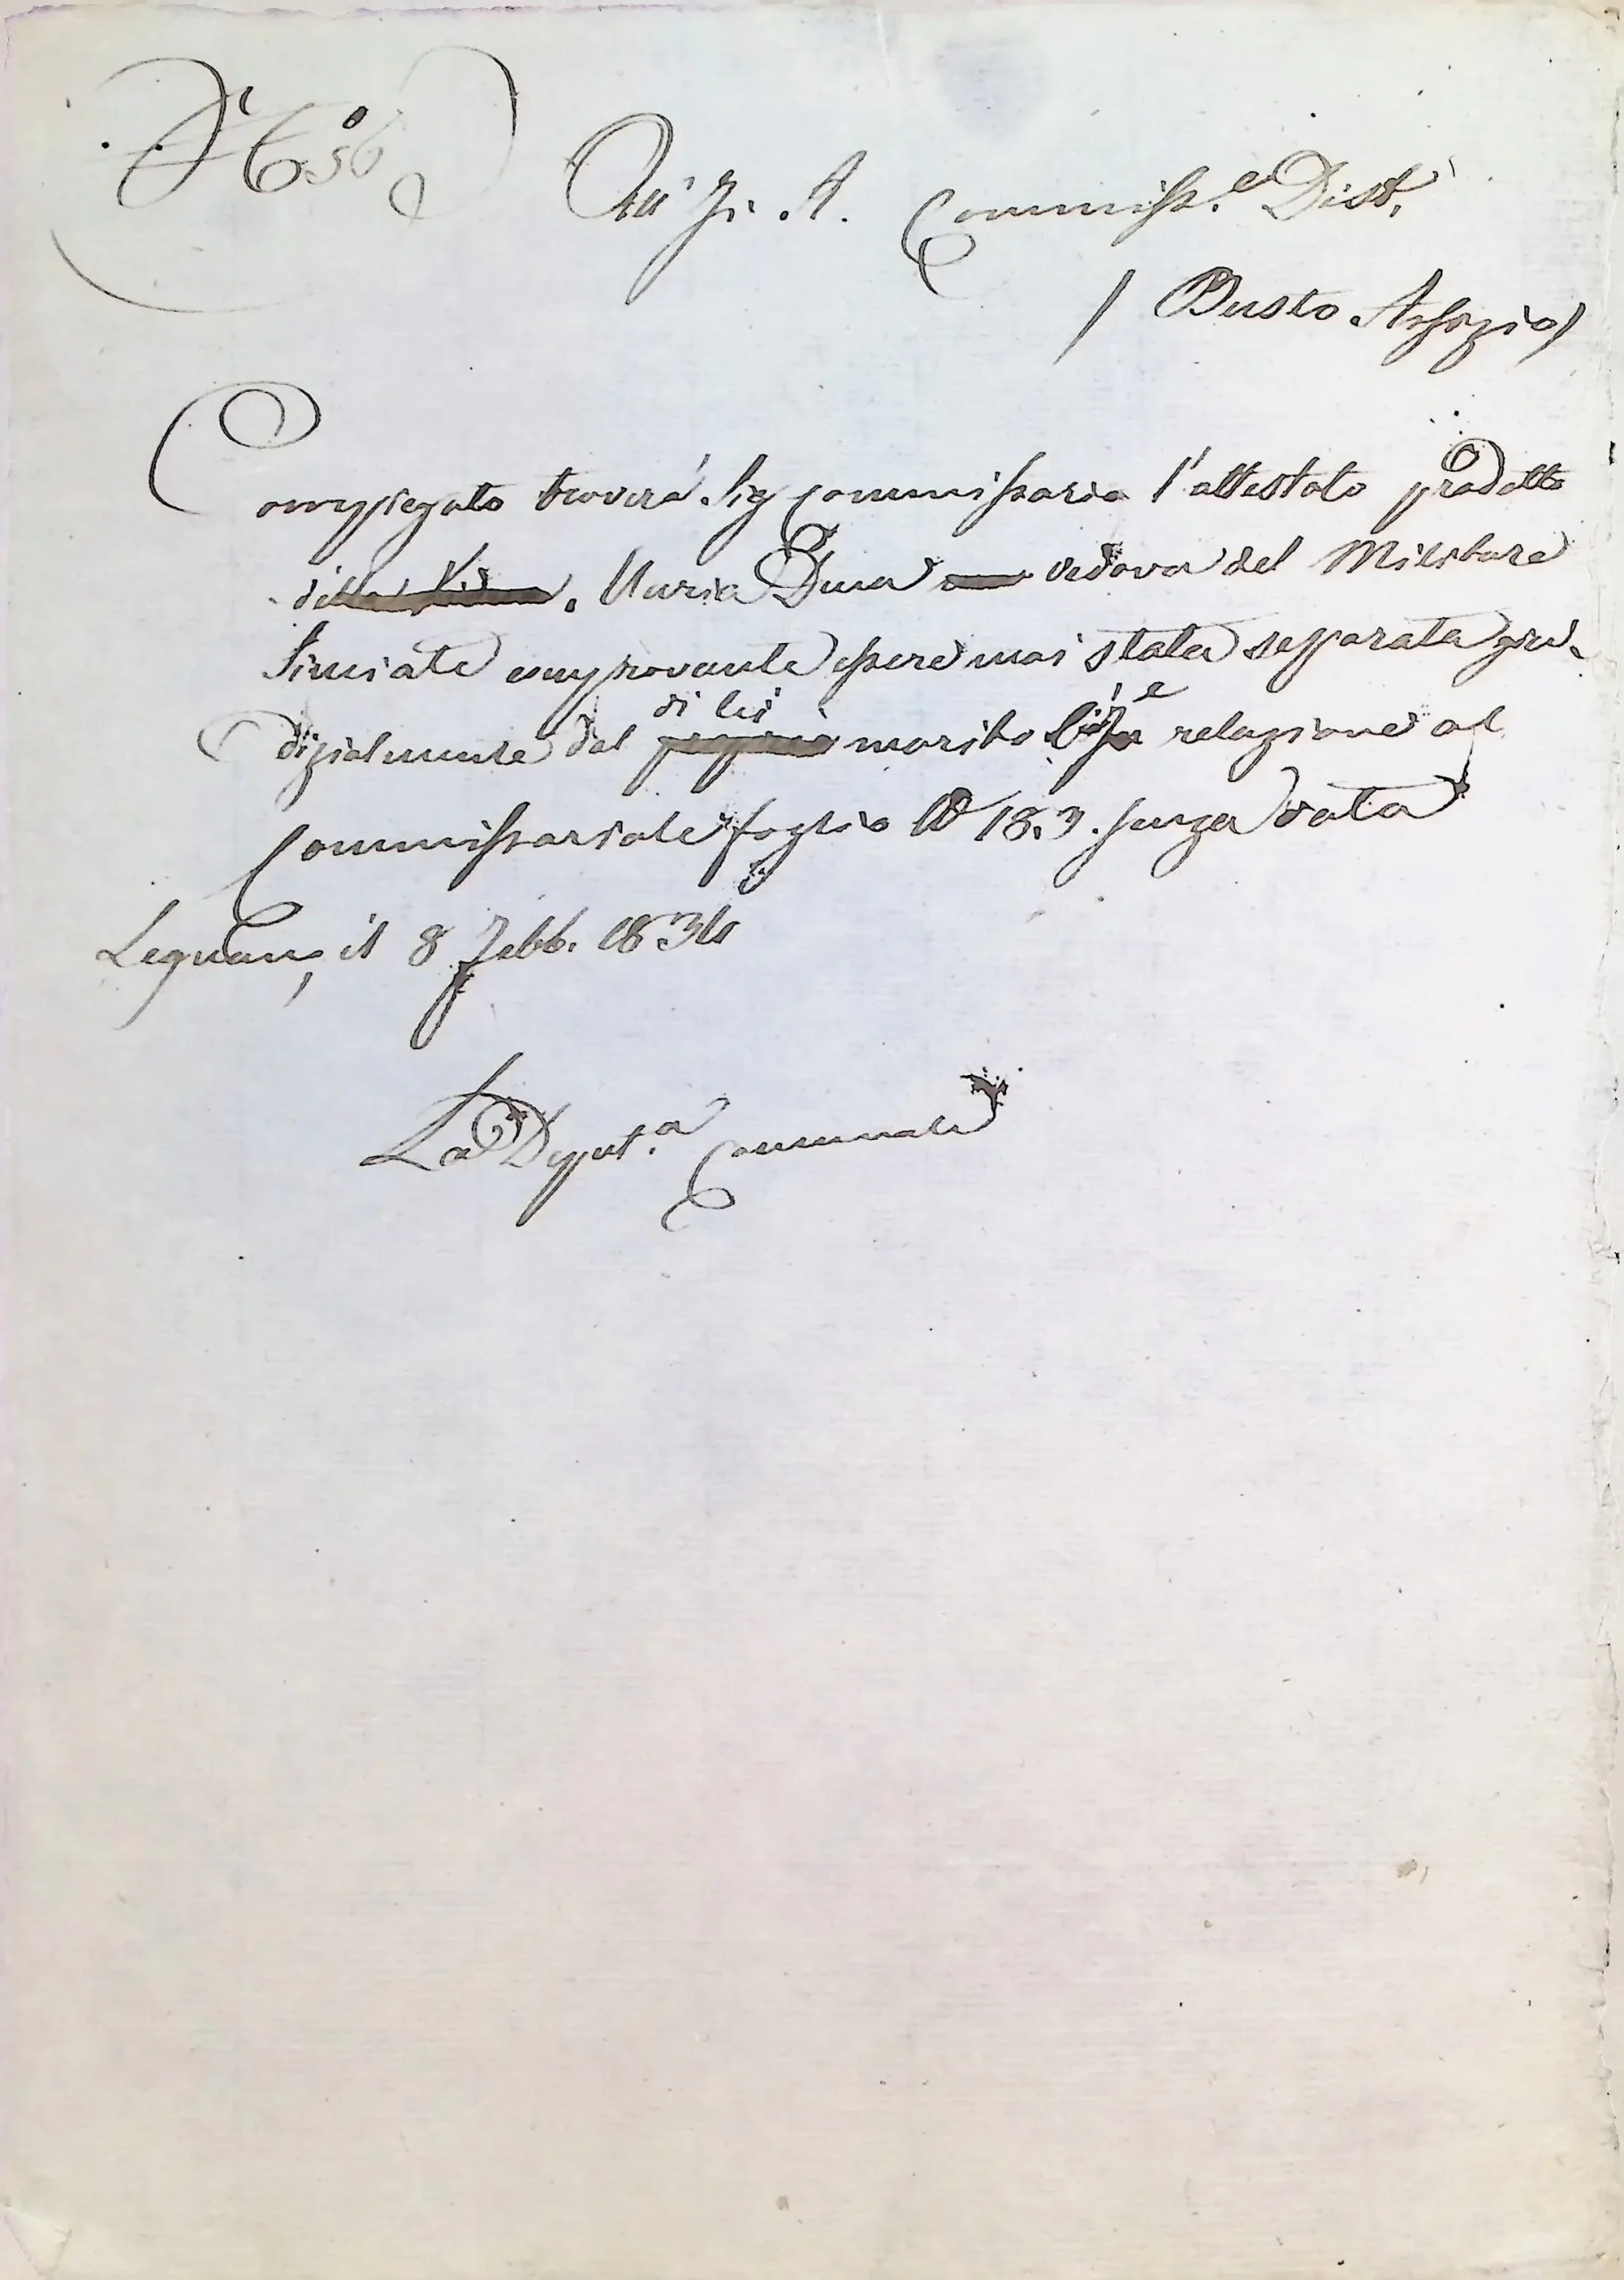 N.° 656
All' I. R. Commiss.e Dist.
/ Busto Arsizio /
Compiegato troverà Sig Commissario l'attestato prodotto
della Maria Dua vedova del Militare
comprovante essere mai stata sepparata giu-
di lei
dizialmente dal proprio marito relazione al
Commissariale foglio senza data
Legnano, il 8 Febb. 1834
La Deput.a Comunale